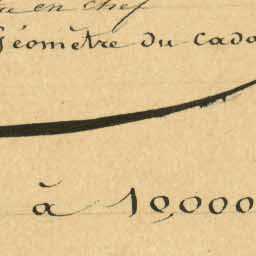 en chef
Géomètre du cada
à 10000